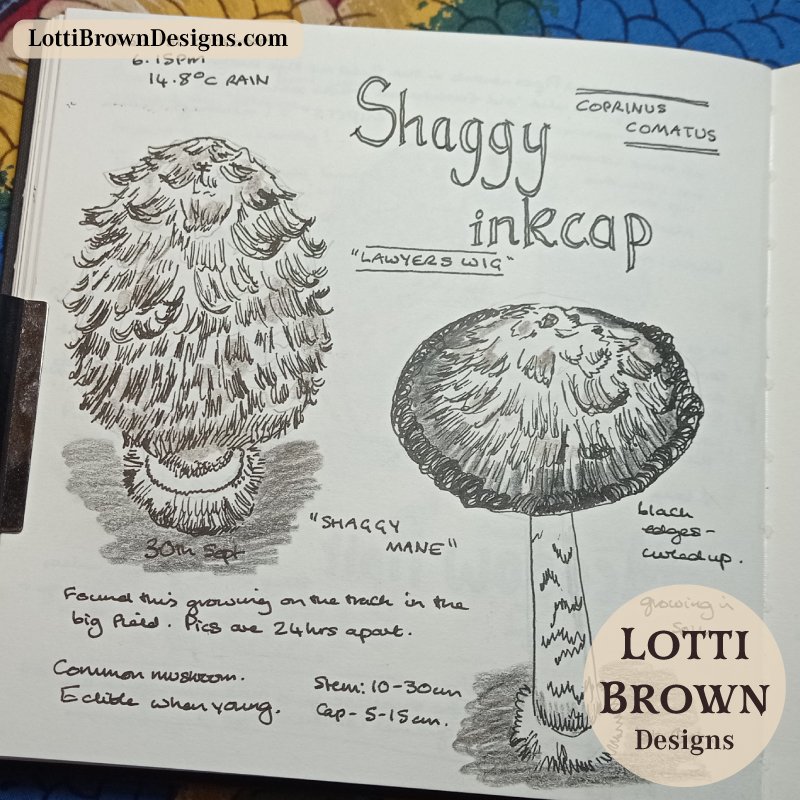 LottiBrownDesigns.com
6.15pm
14.8°C RAIN
Shaggy
inkcap
COPRINUS
COMATUS
"LAWYERS WIG"
"SHAGGY
MANE"
30th Sept
black
edges-
curled up.
growing in
Found this growing on the track in the
big field. Pics are 24hrs apart.
Common mushroom.
Edible when young.
Stem: 10-30cm
Cap - 5-15cm.
LOTTI
BROWN
Designs